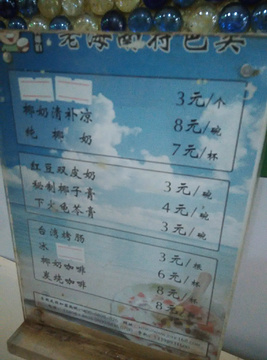 老海南椰巴头
3元/个
椰奶清补凉 8元/碗
纯椰奶 7元/杯
红豆双皮奶 3元/碗
秘制椰子膏 4元/碗
下火龟苓膏 3元/碗
台湾烤肠 3元/根
冰 6元/杯
椰奶咖啡 8元/杯
炭烧咖啡 8元/